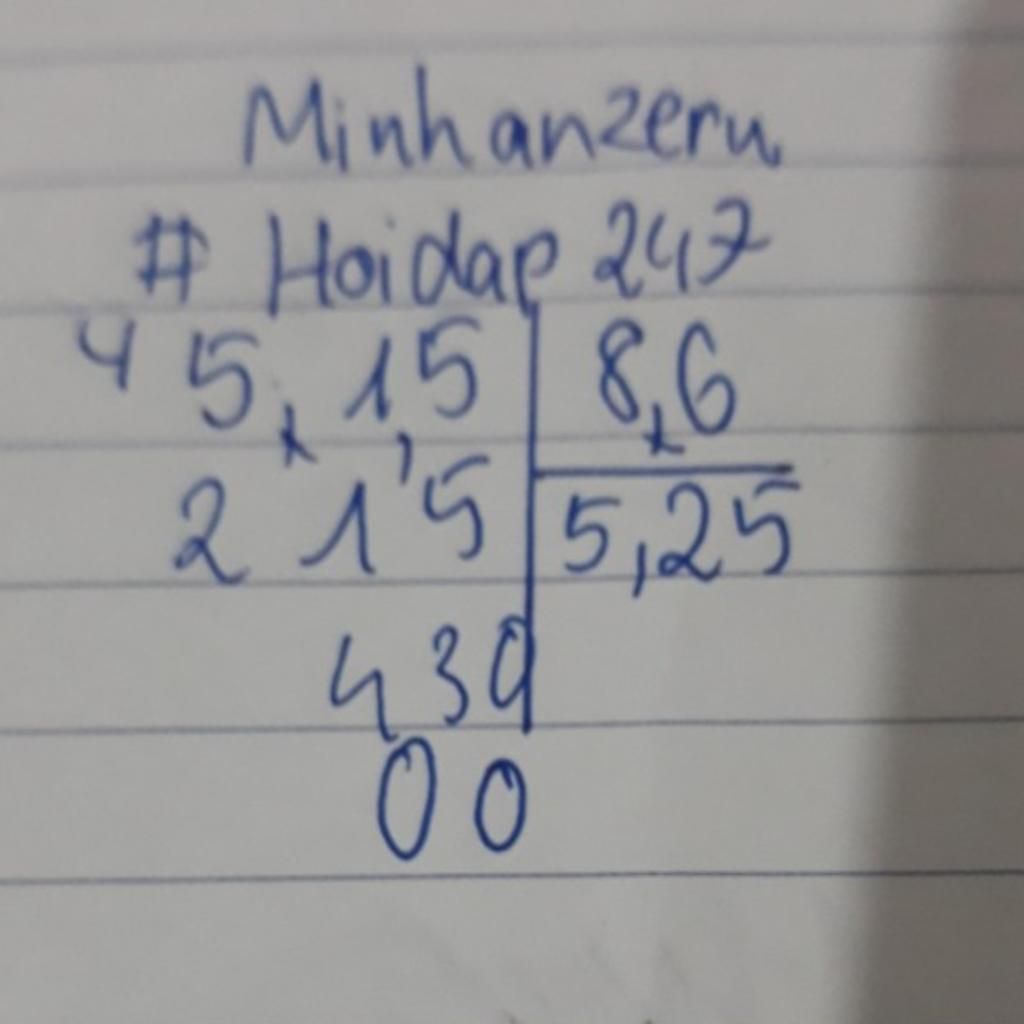 Minhanzeru
# Hoidap 247
45,1,5 8,6
215 5,25
430
00